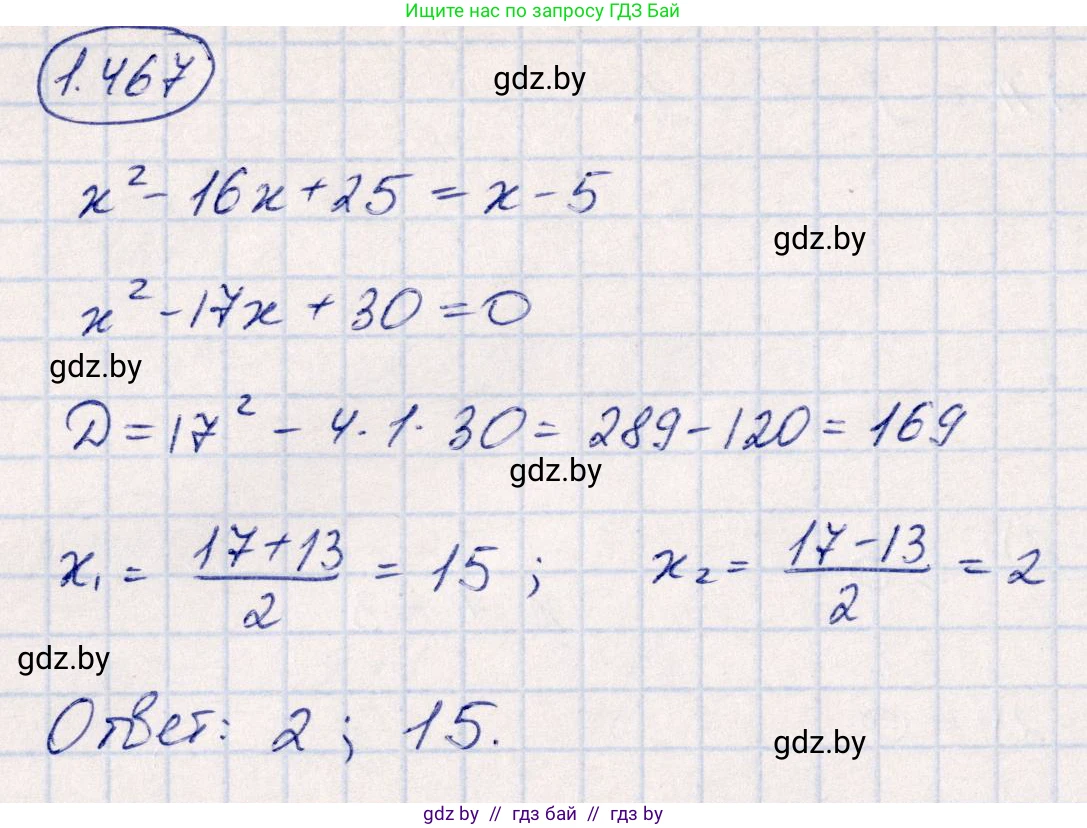 Ищите нас по запросу ГДЗ Бай
1.467
gdz.by
x² - 16x + 25 = x - 5
gdz.by
x² - 17x + 30 = 0
gdz.by
D = 17² - 4 · 1 · 30 = 289 - 120 = 169
gdz.by
x₁ = (17 + 13)/2 = 15 ; x₂ = (17 - 13)/2 = 2
gdz.by
Ответ: 2 ; 15.
gdz.by
gdz by // гдз бай // гдз by